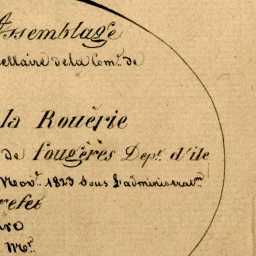 Assemblage
ellaire de la Com.ne de
la Rouërie
de fougères Dep.t d'ile
Nov.re 1823 Sous L'administrat.on
refet
M.r